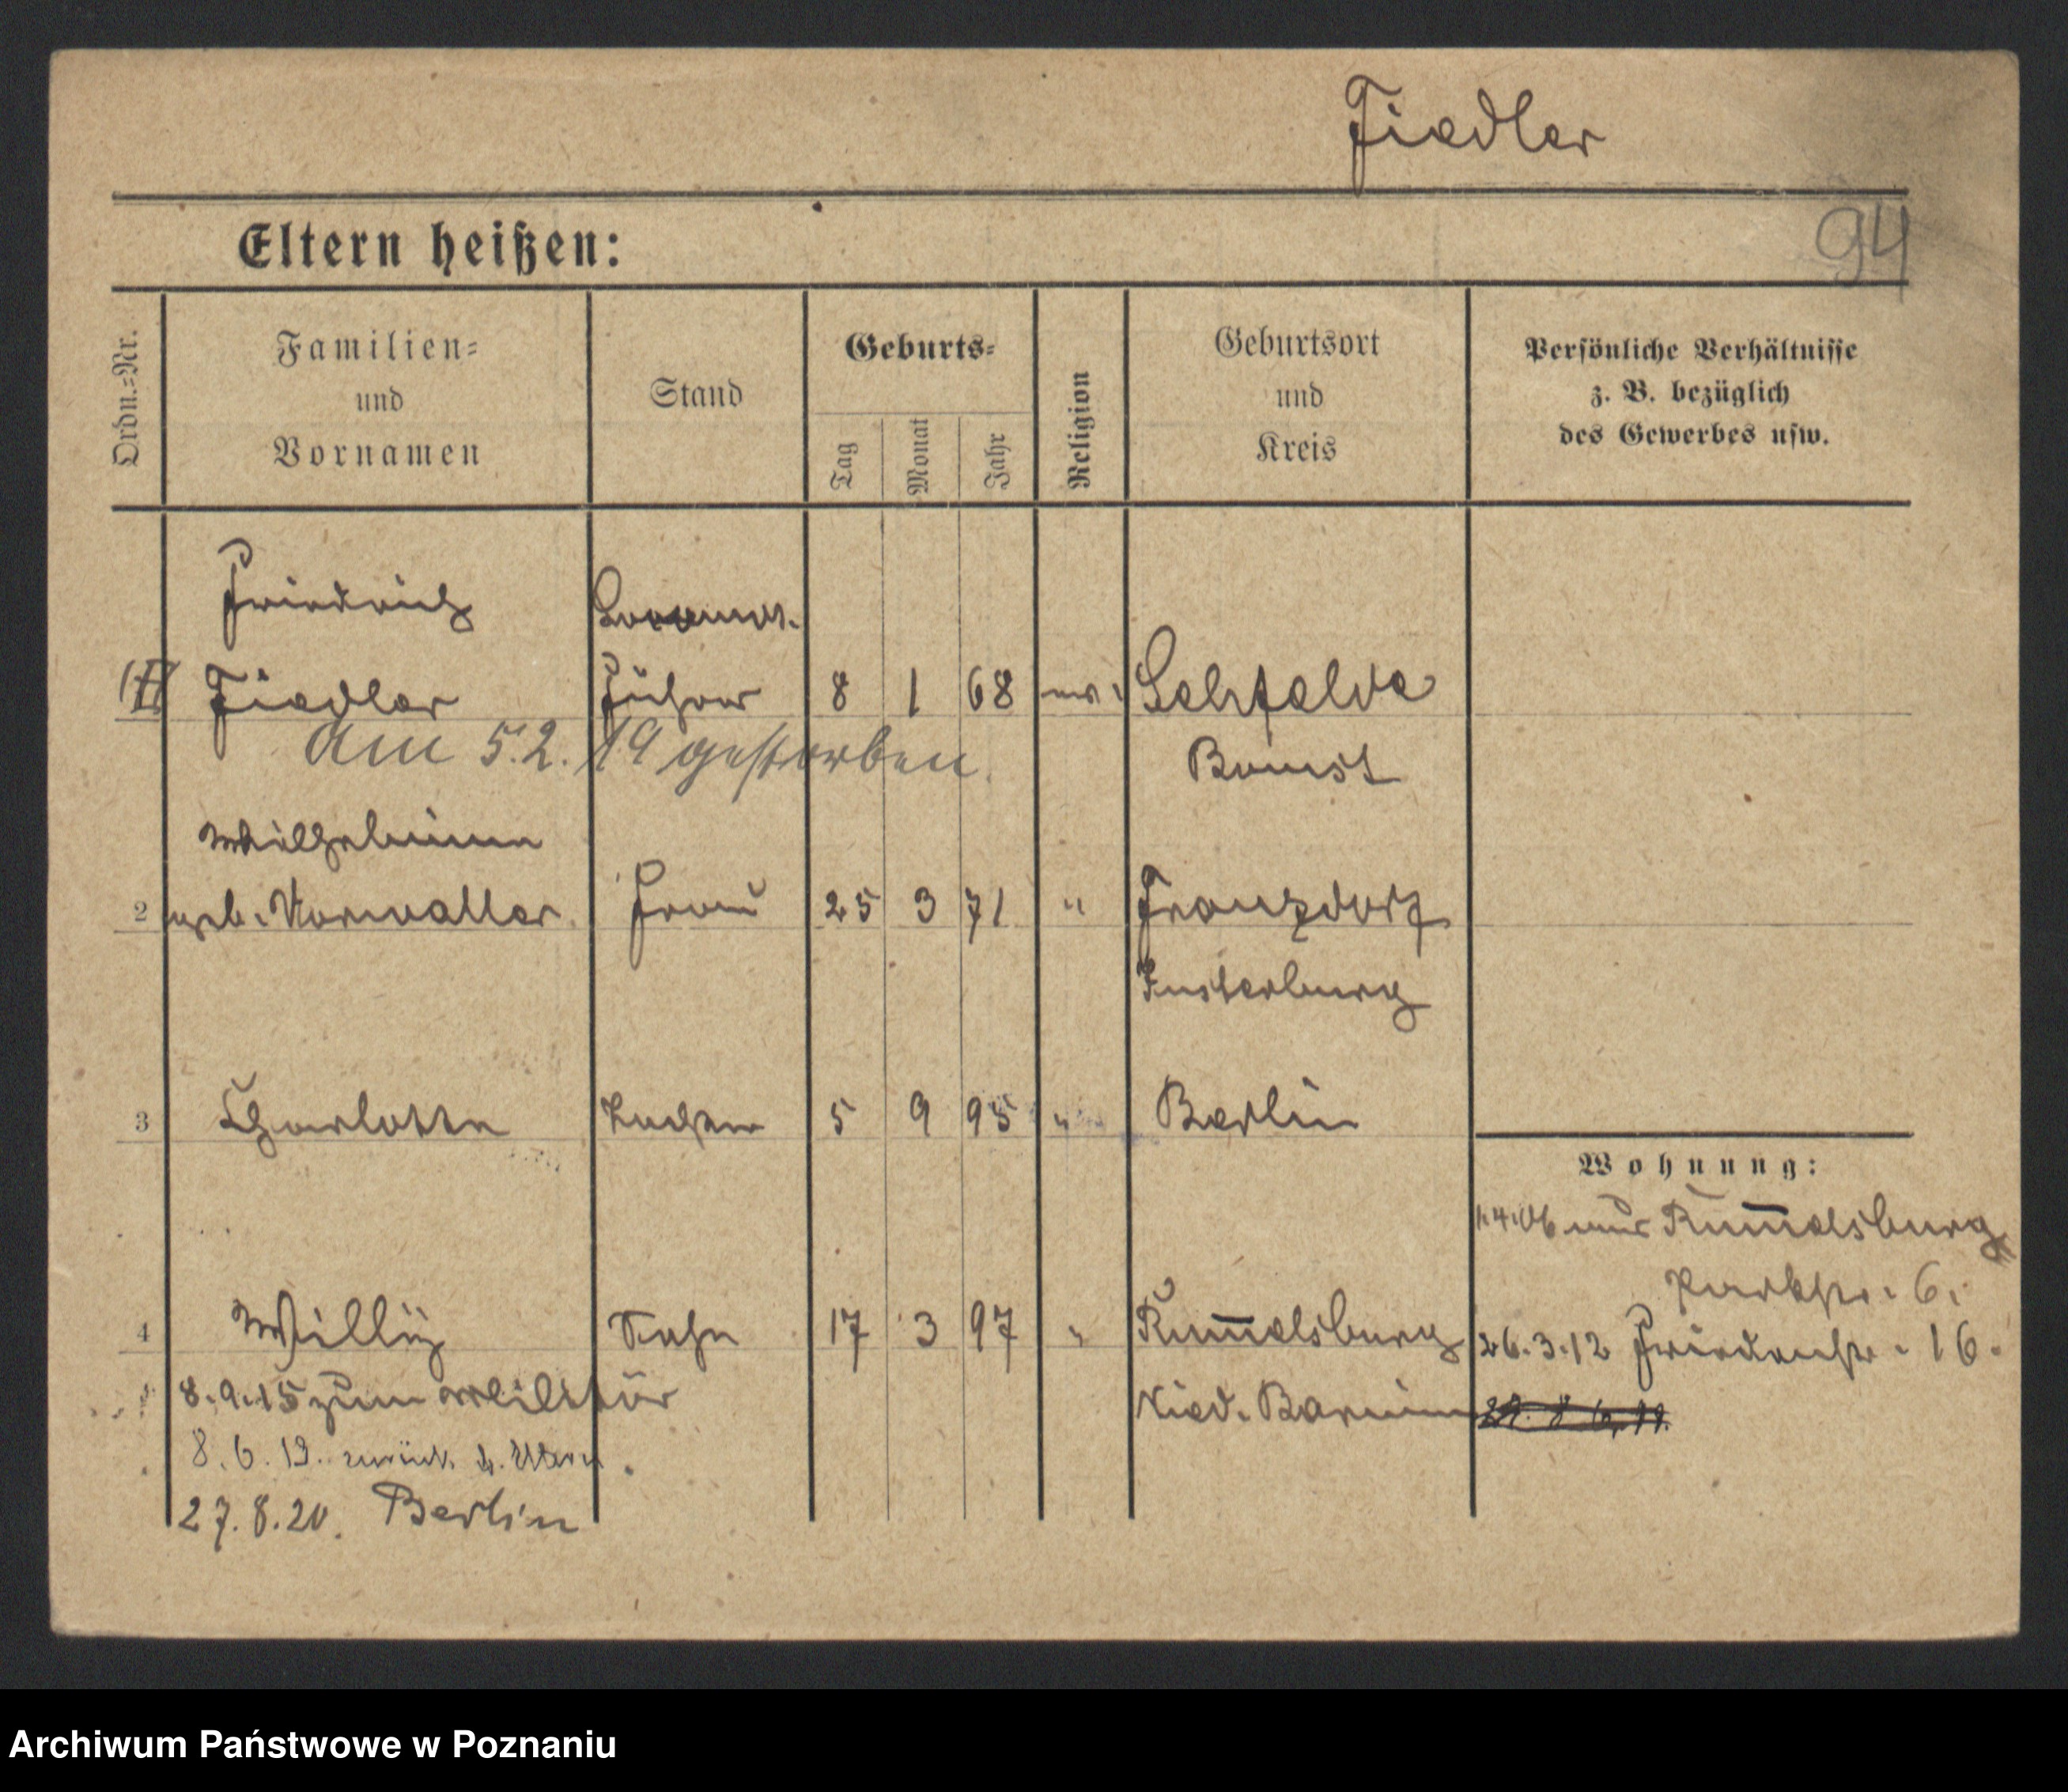 Fiedler
94
Eltern heißen:
Ordn.=Nr.
Familien=
und
Vornamen
Stand
Geburts=
Tag
Monat
Jahr
Religion
Geburtsort
und
Kreis
Persönliche Verhältnisse
z. B. bezüglich
des Gewerbes usw.
Friedrich
Fiedler Führer 8 1 68 ev.
Bomst
am 5.2.19 gestorben.
Wilhelmine
2 geb. Frau 25 3 71 " Franzdorf
Insterburg
3 Charlotte Tochter 5 9 95 " Berlin
Wohnung:
1.4.06 Rummelsburg
Parkstr. 6.
4 Willy Sohn 17 3 97 " Rummelsburg
26.3.12 Friedenstr. 16.
8.9.15 zum Militär
Nied. Barnim
8.6.19. zurück z. Eltern
27.8.20. Berlin
Archiwum Państwowe w Poznaniu